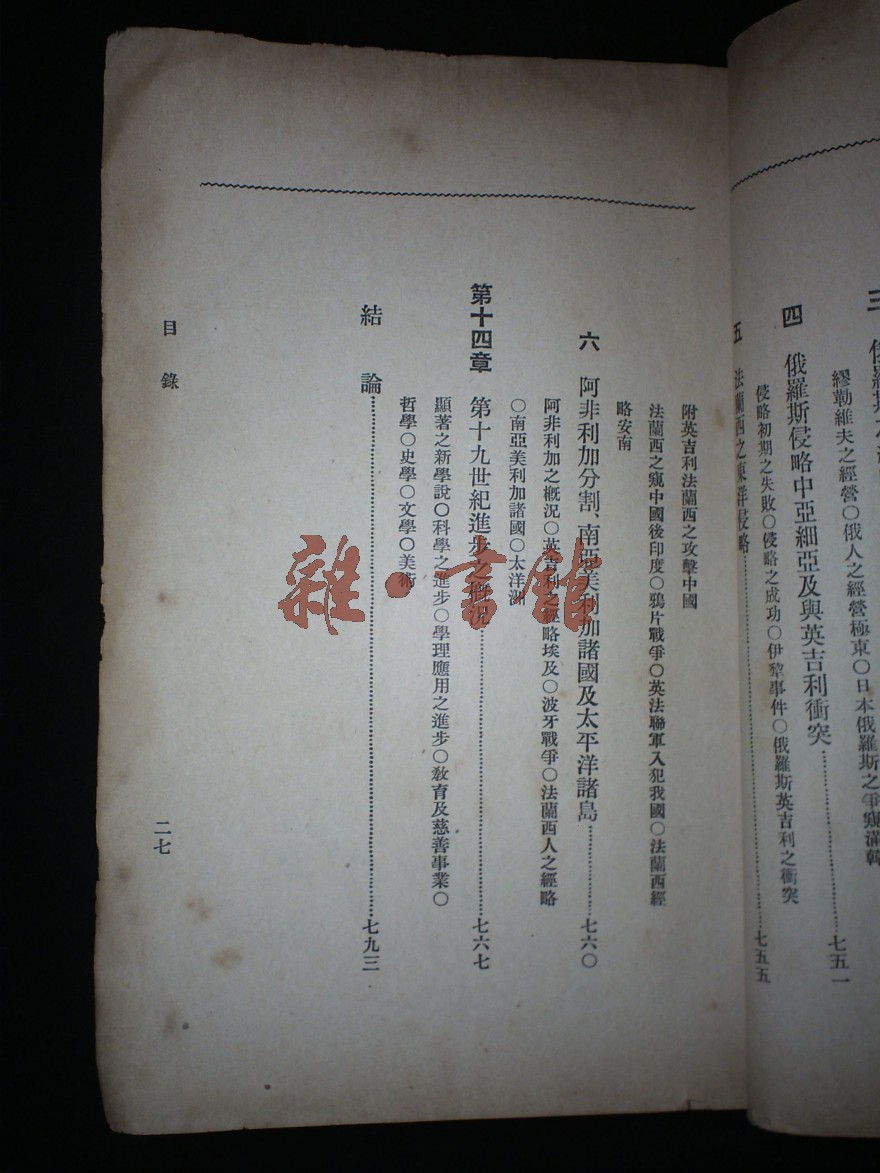 繆勒維夫之經營○俄人之經營極東○日本俄羅斯之爭窺滿韓
四　俄羅斯侵略中亞細亞及與英吉利衝突……七五一
侵略初期之失敗○侵略之成功○伊犂事件○俄羅斯英吉利之衝突
五　法蘭西之東洋侵略……七五五
附英吉利法蘭西之攻擊中國
法蘭西之窺中國後印度○鴉片戰爭○英法聯軍入犯我國○法蘭西經
略安南
六　阿非利加分割、南亞美利加諸國及太平洋諸島……七六〇
阿非利加之概況○英吉利之經略埃及○波牙戰爭○法蘭西人之經略
○南亞美利加諸國○太洋洲
第十四章　第十九世紀進步之概況……七六七
顯著之新學說○科學之進步○學理應用之進步○教育及慈善事業○
哲學○史學○文學○美術
結論……七九三
目錄
二七
雜·書館